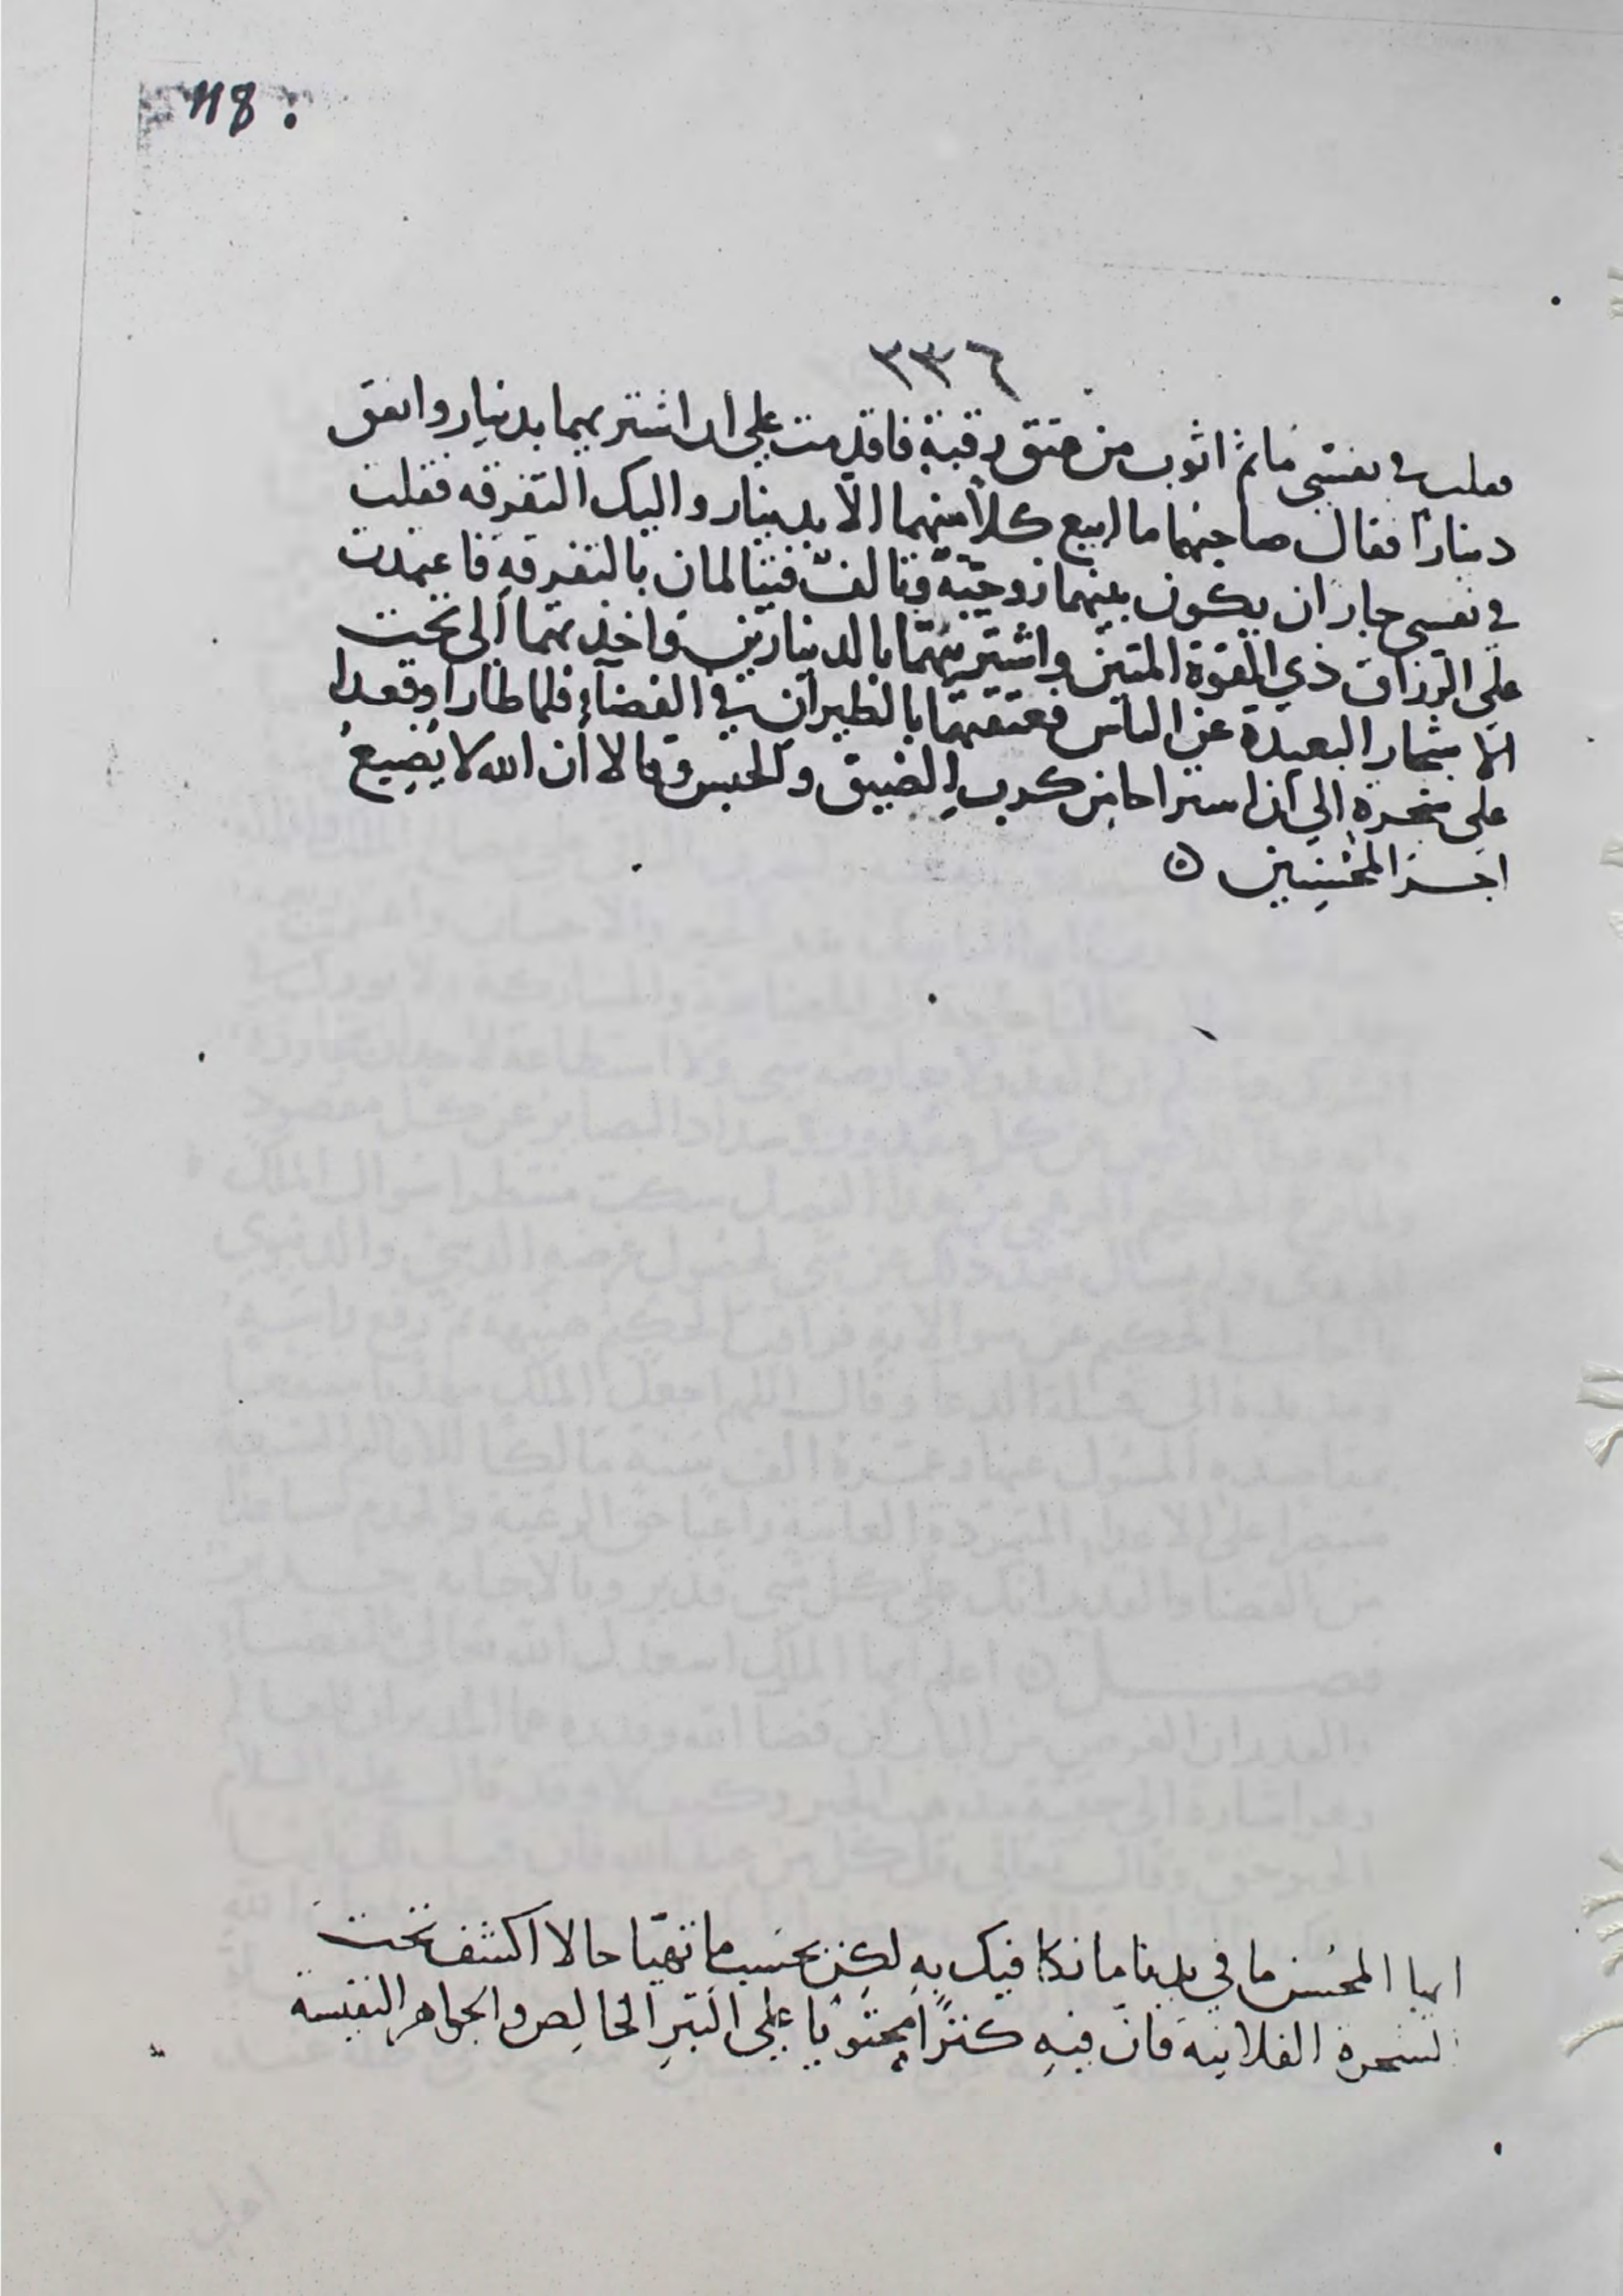 118
٣٣٦
فقلت في نفسي ما ثم اثوب من عتق رقبة فاقدمت على ان اشتريهما بدينار وانفق
دينارا فقال صاحبهما ما ابيع كلا منهما الا بدينار واليك التفرقه فقلت
في نفسي جاز ان يكون بينهما زوجية وتالف فيتالمان بالتفرقة فاعتمدت
على الرزاق ذي القوة المتين واشتريتهما بالدينارين واخذتهما الى تحت
الاشجار البعيدة عن الناس فعتقتهما بالطيران في الفضاء فلما طارا وقعدا
على شجرة الى ان استراحا من كرب الضيق والحبس وقالا أن الله لا يُضِيعُ
اجر المحسِنِين ٥
ايها المحسن ما في يدنا ما نكافيك به لكن بحسب ما تهيّا حالا اكشف تحت
الشجرة الفلانية فان فيه كنزًا محتويا على التبرِ الخالِص والجواهر النفيسة